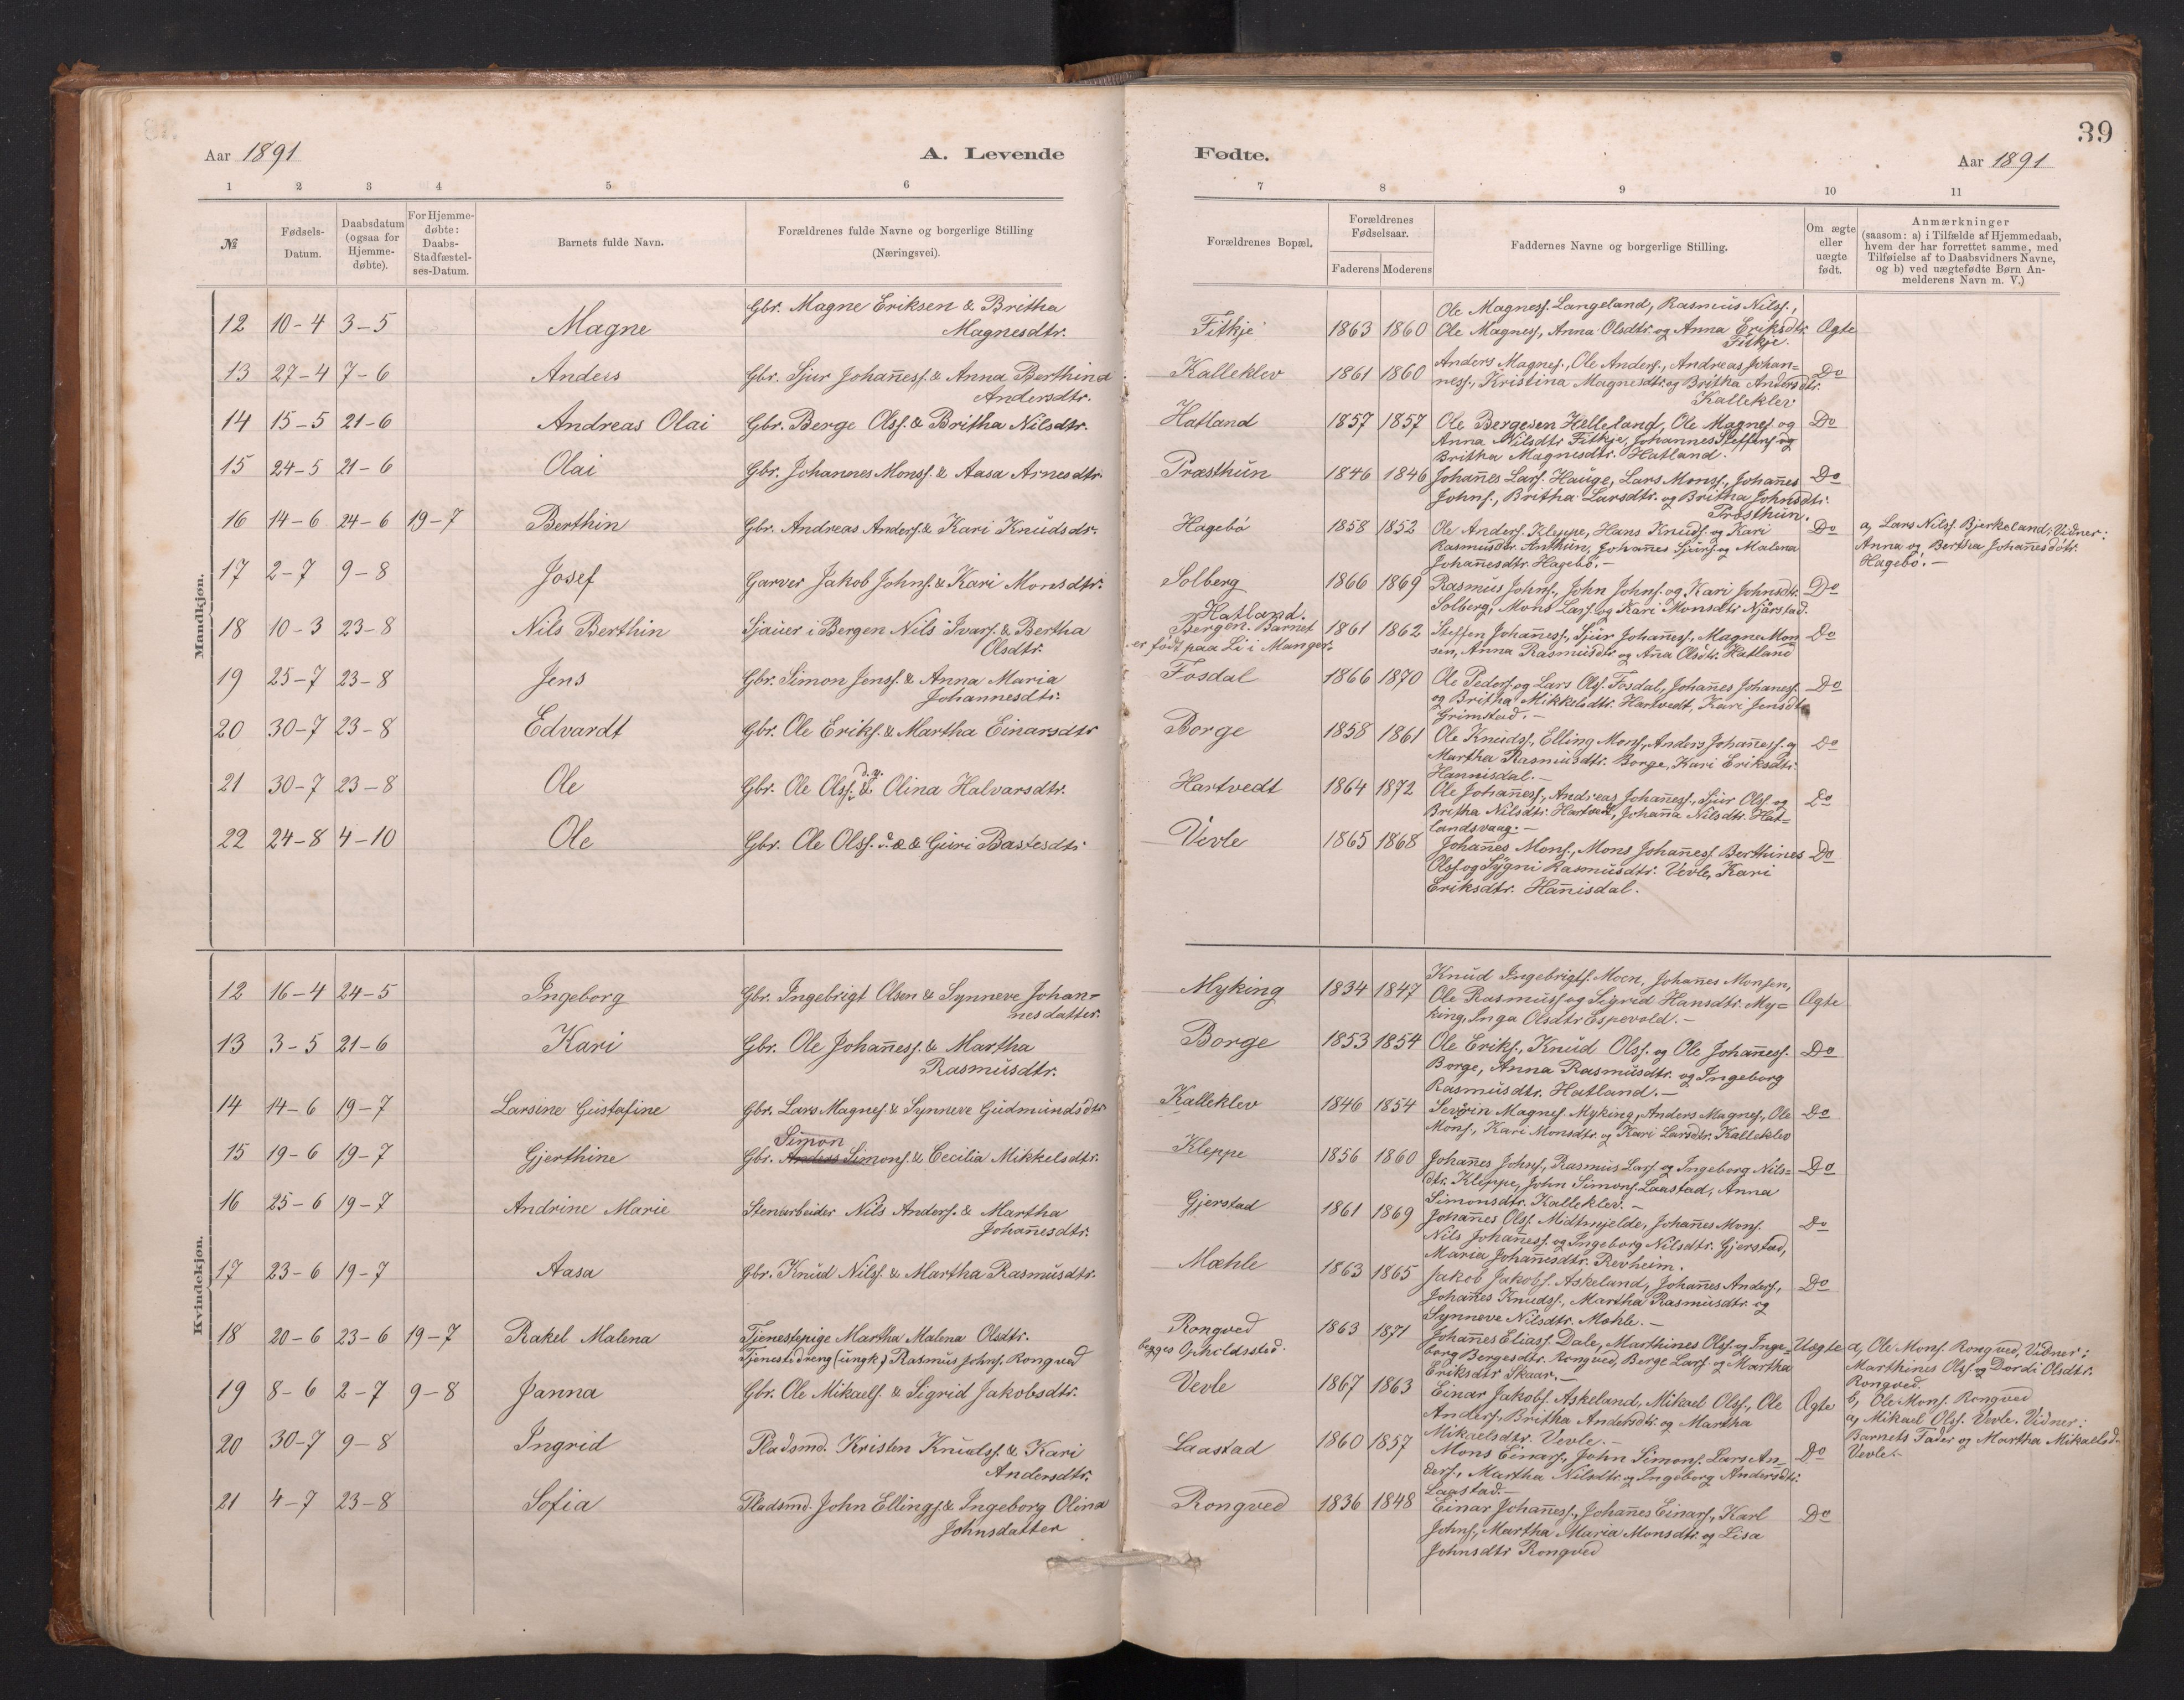 39
Aar 1891
A. Levende Fødte.
Aar 1891
1 2 3 4 5 6 7 8 9 10 11
№
Fødsels-
Datum.
Daabsdatum
(ogsaa for
Hjemme-
døbte).
For Hjemme-
døbte:
Daabs-
Stadfæstel-
ses-Datum.
Barnets fulde Navn.
Forældrenes fulde Navne og borgerlige Stilling
(Næringsvei).
Forældrenes Bopæl.
Forældrenes
Fødselsaar.
Faderens Moderens
Faddernes Navne og borgerlige Stilling.
Om ægte
eller
uægte
født.
Anmærkninger
(saasom: a) i Tilfælde af Hjemmedaab,
hvem der har forrettet samme, med
Tilføielse af to Daabsvidners Navne,
og b) ved uægtefødte Børn An-
melderens Navn m. V.)
Mandkjøn.
12 10-4 3-5 Magne
Gbr. Magne Eriksen & Britha
Magnesdtr.
Fitkje 1863 1860
Ole Magness. Langeland, Rasmus Nilss.,
Ole Magness, Anna Olsdtr. og Anna Eriksdtr.
Fitkje.
Ægte
13 27-4 7-6 Anders
Gbr. Sjur Johanness. & Anna Berthina
Andersdtr.
Kalleklev 1861 1860
Anders Magness., Ole Anderss., Andreas Johan-
ness., Kristina Magnesdtr. og Britha Andersdtr.
Kalleklev
Do
14 15-5 21-6 Andreas Olai
Gbr. Berge Olss. & Britha Nilsdtr.
Hatland 1857 1857
Ole Bergesen Helleland, Ole Magness. og
Anna Nilsdtr Fitkje, Johannes Steffens. og
Britha Magnesdtr. Hatland.
Do
15 24-5 21-6 Olai
Gbr. Johannes Monss. & Aasa Arnesdtr.
Præsthun 1846 1846
Johannes Larss. Hauge, Lars Monss., Johannes
Johns., Britha Larsdtr. og Britha Johnsdtr.
Præsthun.
Do
16 14-6 24-6 19-7 Berthin
Gbr. Andreas Anderss. & Kari Knudsdr.
Hagebø 1858 1852
Ole Anderss. Kleppe, Hans Knuds. og Kari
Rasmusdtr. Anthun, Johannes Sjurs. og Malena
Johannesdtr. Hagebø.-
Do
a, Lars Nilss. Bjerkeland, Vidner:
Anna og Bertha Johannesdøtr.
Hagebø.-
17 2-7 9-8 Josef
Garver Jakob Johns. & Kari Monsdtr.
Solberg 1866 1869
Rasmus Johns., John Johns. og Kari Johnsdtr.
Solberg, Mons Larss. og Kari Monsdtr Njåstad.
Do
18 10-3 23-8 Nils Berthin
Sjauer i Bergen Nils Ivars. & Bertha
Olsdtr.
Hatland.
Bergen. Barnet
er født paa Li i Manger.
1861 1862
Steffen Johanness., Sjur Johanness., Magne Mon
sen, Anna Rasmusdtr. og Anna Olsdtr. Hatland
Do
19 25-7 23-8 Jens
Gbr. Simon Jenss. & Anna Maria
Johannesdtr.
Fosdal 1866 1870
Ole Peders. og Lars Olss. Fosdal, Johannes Johaness.
og Britha Mikkelsdtr. Hartvedt, Kari Jensdtr
Grimstad.-
Do
20 30-7 23-8 Edvardt
Gbr. Ole Eriks. & Martha Einarsdtr
Borge 1858 1861
Ole Knudss., Elling Mons., Anders Johaness. og
Martha Rasmusdtr. Borge, Kari Eriksdtr.
Hannisdal.-
Do
21 30-7 23-8 Ole
Gbr. Ole Olss. d.y. & Olina Halvarsdtr.
Hartvedt 1864 1872
Ole Johaness., Andreas Johaness., Sjur Olss. og
Britha Nilsdtr. Hartvedt, Johanna Nilsdtr. Hat-
landsvaag.-
Do
22 24-8 4-10 Ole
Gbr. Ole Olss. d. æ & Guri Bastesdtr
Vevle 1865 1868
Johannes Mons., Mons Johanness. Berthines
Olss. og Sygni Rasmusdtr. Vevle, Kari
Eriksdtr. Hannisdal.
Do
Kvindekjøn.
12 16-4 24-5 Ingeborg
Gbr. Ingebrigt Olsen & Synneve Johan-
nesdatter.
Myking 1834 1847
Knud Ingebrigts. Moen, Johannes Monsen,
Ole Rasmuss. og Sigrid Hansdtr. My-
king, Inga Olsdtr Espevold.-
Ægte
13 3-5 21-6 Kari
Gbr. Ole Johaness. & Martha
Rasmusdtr.
Borge 1853 1854
Ole Eriks., Knud Olss. og Ole Johaness.
Borge, Anna Rasmusdtr. og Ingeborg
Rasmusdtr. Hatland.-
Do
14 14-6 19-7 Larsine Gustafine
Gbr. Lars Magness. & Synneve Gudmundsdtr
Kalleklev 1846 1854
Severin Magness. Myking, Anders Magness., Ole
Mons., Kari Monsdtr. og Kari Larsdtr. Kalleklev
Do
15 19-6 19-7 Gjerthine
Simon
Gbr. Anders Simons. & Cecilia Mikkelsdtr.
Kleppe 1856 1860
Johannes Johns., Rasmus Larss. og Ingeborg Nils-
dtr. Kleppe, John Simons. Laastad, Anna
Simonsdtr. Kalleklev.-
Do
16 25-6 19-7 Andrine Marie
Stenarbeider Nils Anderss. & Martha
Johannesdtr.
Gjerstad 1861 1869
Johannes Olss. Midtmjelde, Johannes Mons.
Nils Johaness. og Ingeborg Nilsdtr. Gjerstad,
Maria Johannisdtr. Revheim.
Do
17 23-6 19-7 Aasa
Gbr. Knud Nilss. & Martha Rasmusdtr.
Mæhle 1863 1865
Jakob Jakobs. Askeland, Johannes Anders.,
Johannes Knudss., Martha Rasmusdtr. og
Synneve Nilsdtr. Mæhle.-
Do
18 20-6 23-6 19-7 Rakel Malena
Tjenestepige Martha Malena Olsdtr.
Tjenestedreng (ungk.) Rasmus Johns. Rongved
Rongved
begges Opholdssted.
1863 1871
Johannes Eliass. Dale, Marthines Olss. og Inge-
borg Bergesdtr. Rongved, Berge Larss. og Martha
Eriksdtr Skaar.-
Uægte
a, Ole Mons. Rongved, Vidner:
Marthines Olss. og Dordi Olsdtr.
Rongved.
b, Ole Mons. Rongved
19 8-6 2-7 9-8 Janna
Gbr. Ole Mikaels. & Sigrid Jakobsdtr.
Vevle 1867 1863
Einar Jakobs. Askeland, Mikael Olss., Ole
Anders., Britha Andersdtr. og Martha
Mikaelsdtr. Vevle.-
Ægte
a, Mikael Olss. Vevle. Vidner:
Barnets Fader og Martha Mikaelsd.
Vevle.-
20 30-7 9-8 Ingrid
Pladsmd. Kristen Knudss. & Kari
Andersdtr.
Laastad 1860 1857
Mons Einars., John Simons. Lars An-
ders., Martha Nilsdtr. og Ingeborg Andersdtr.
Laastad.-
Do
21 4-7 23-8 Sofia
Pladsmd. John Ellings. & Ingeborg Olina
Johnsdatter
Rongved 1836 1848
Einar Johaness., Johannes Einars., Karl
Johns., Martha Maria Monsdtr. og Lisa
Johnsdtr Rongved
Do